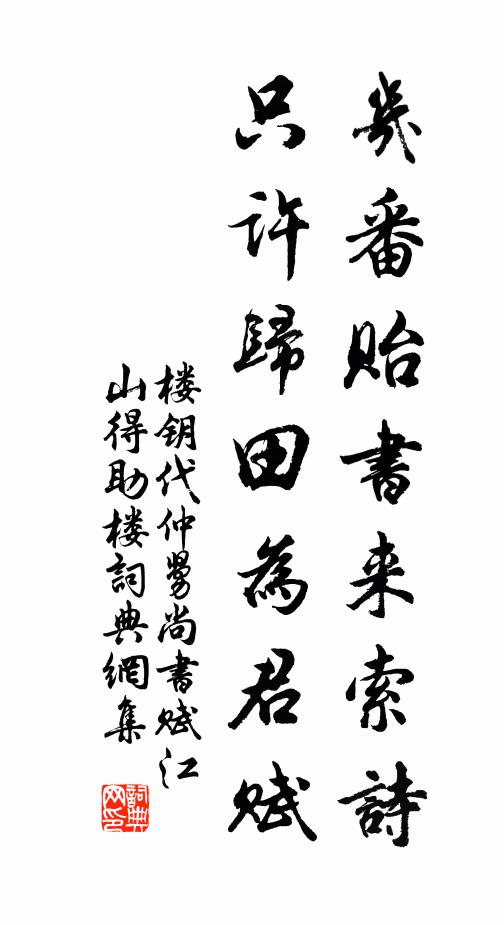 幾番貽書来索詩
只許歸田為君賦
楼钥代仲舅尚書赋江
山得助楼詞典網集
詞典网印